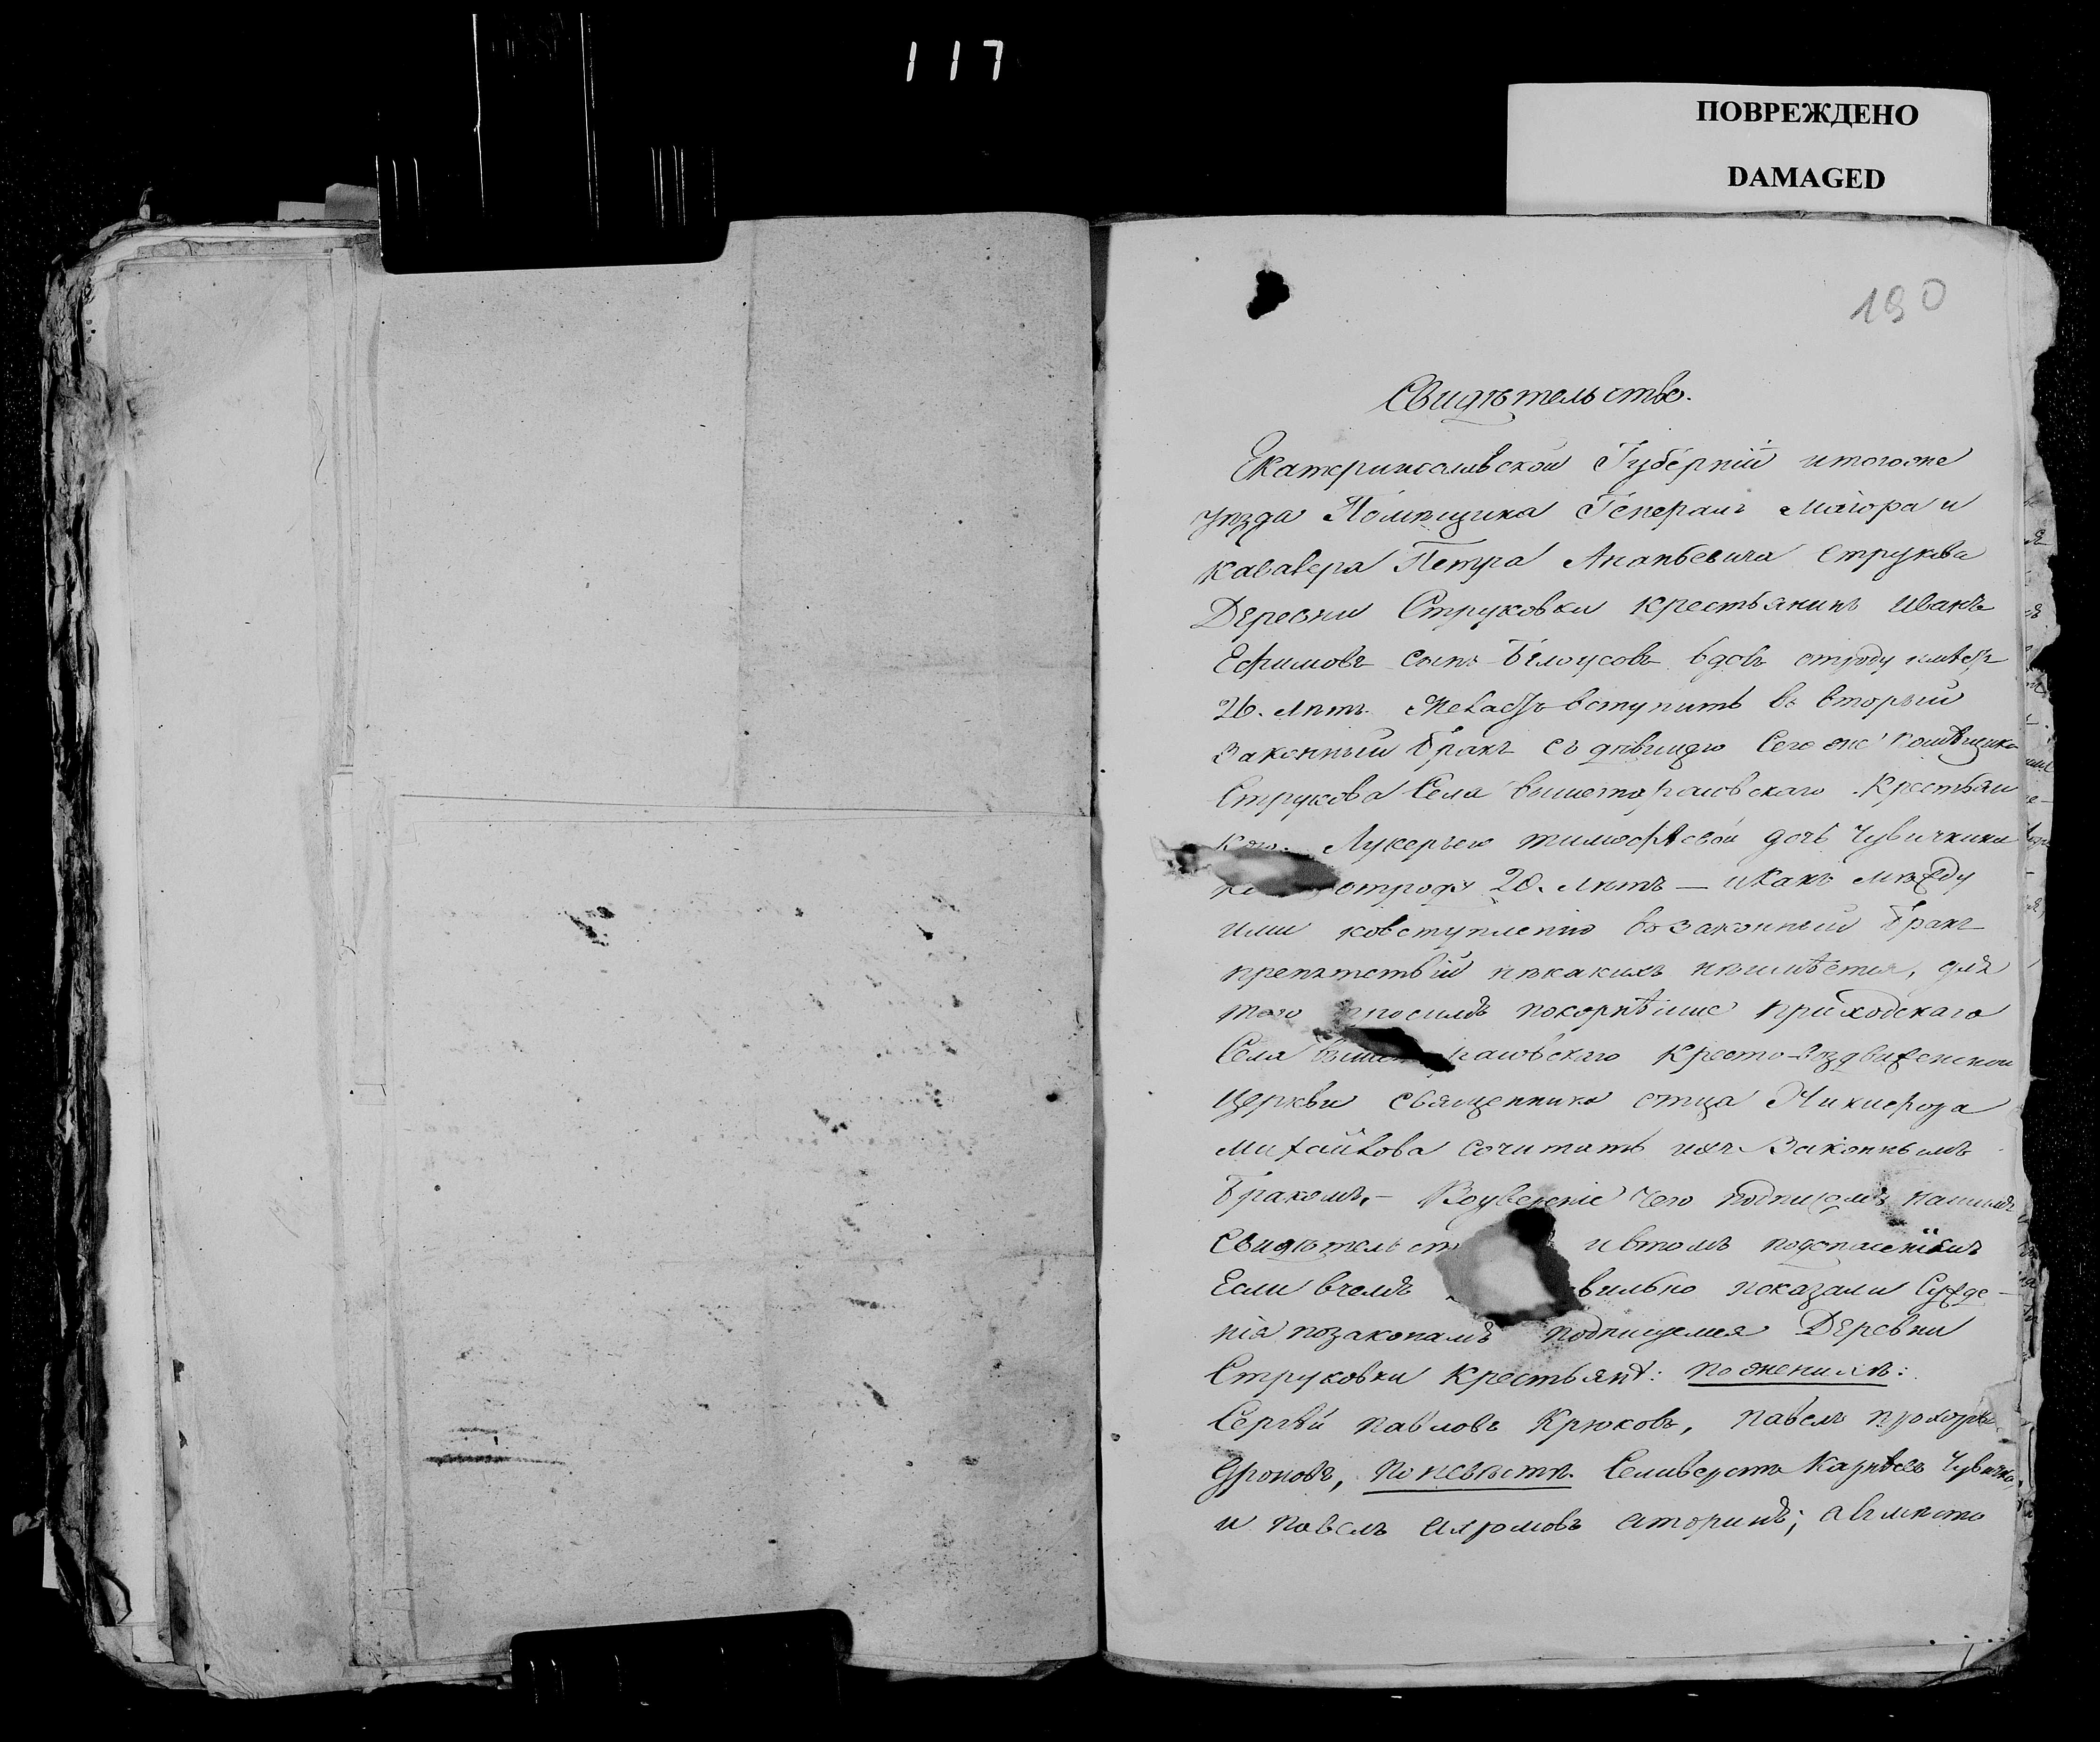 117
ПОВРЕЖДЕНО
DAMAGED
190
Свидѣтельство.
Екатеринославской Губерніи итогоже
уѣзда Помѣщика Генералъ Маіора и
Кавалера Петра Ананьевича Струкова
Деревни Струковки крестьянинъ Иванъ
Ефимовъ сынъ Бѣлоусовъ вдовъ отроду имѣетъ
26. лѣтъ. Желаетъ вступить въ вторый
Законный бракъ съ дѣвицею Сего же помѣщика
Струкова Села вышетарасовскаго Крестьян
кою. Лукерьею тимофѣевой дочь Чувичкини
отроду 20. лѣтъ — икакъ между
ими ковступленію взаконный бракъ
препятствій никакихъ неимѣется, для
того просимъ покорнѣише приходскаго
Села вышетарасовскаго Кресто-воздвиженской
Церкви священника отца Никифора
Михайлова сочитать ихъ Законнымъ
бракомъ, — Воувереніе чего подписомъ нашимъ
Свидѣтельст ивтомъ подопасеніемъ
Если вчемъ вильно показали Сужде-
нія позаконамъ подпишемся Деревни
Струковки Крестьянѣ: по женихѣ:
Сергѣй павловъ Крюковъ, павелъ прохоровъ
Дроновъ, по невѣстѣ. Селиверстъ Карнѣевъ Чувичкин
и павелъ аторинъ; авмѣсто